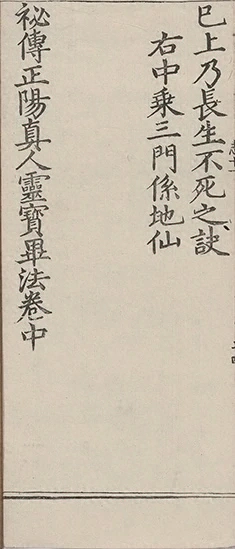 已上乃長生不死之訣
右中乗三門係地仙
祕傳正陽真人靈寶畢法卷中